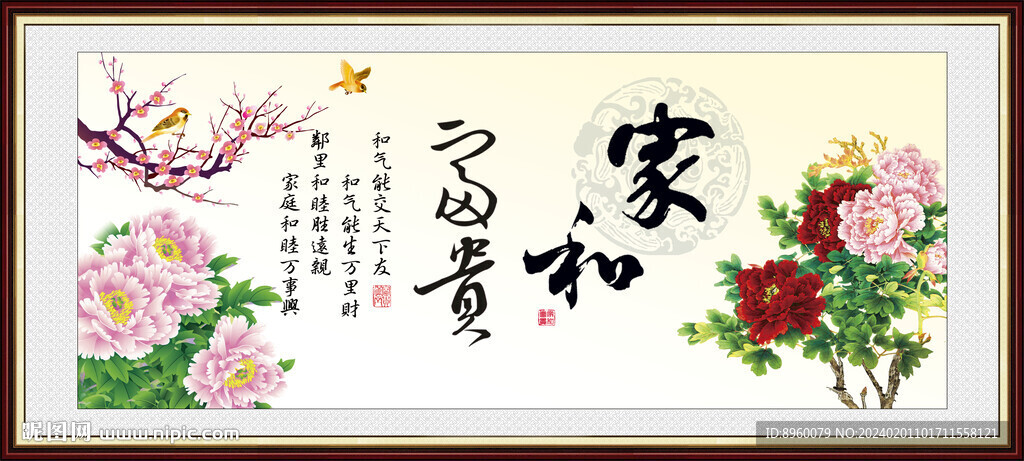 家和
富贵
和气能交天下友
和气能生万里财
鄰里和睦胜遠親
家庭和睦万事興
昵图网 www.nipic.com
ID:8960079 NO:20240201101711558121